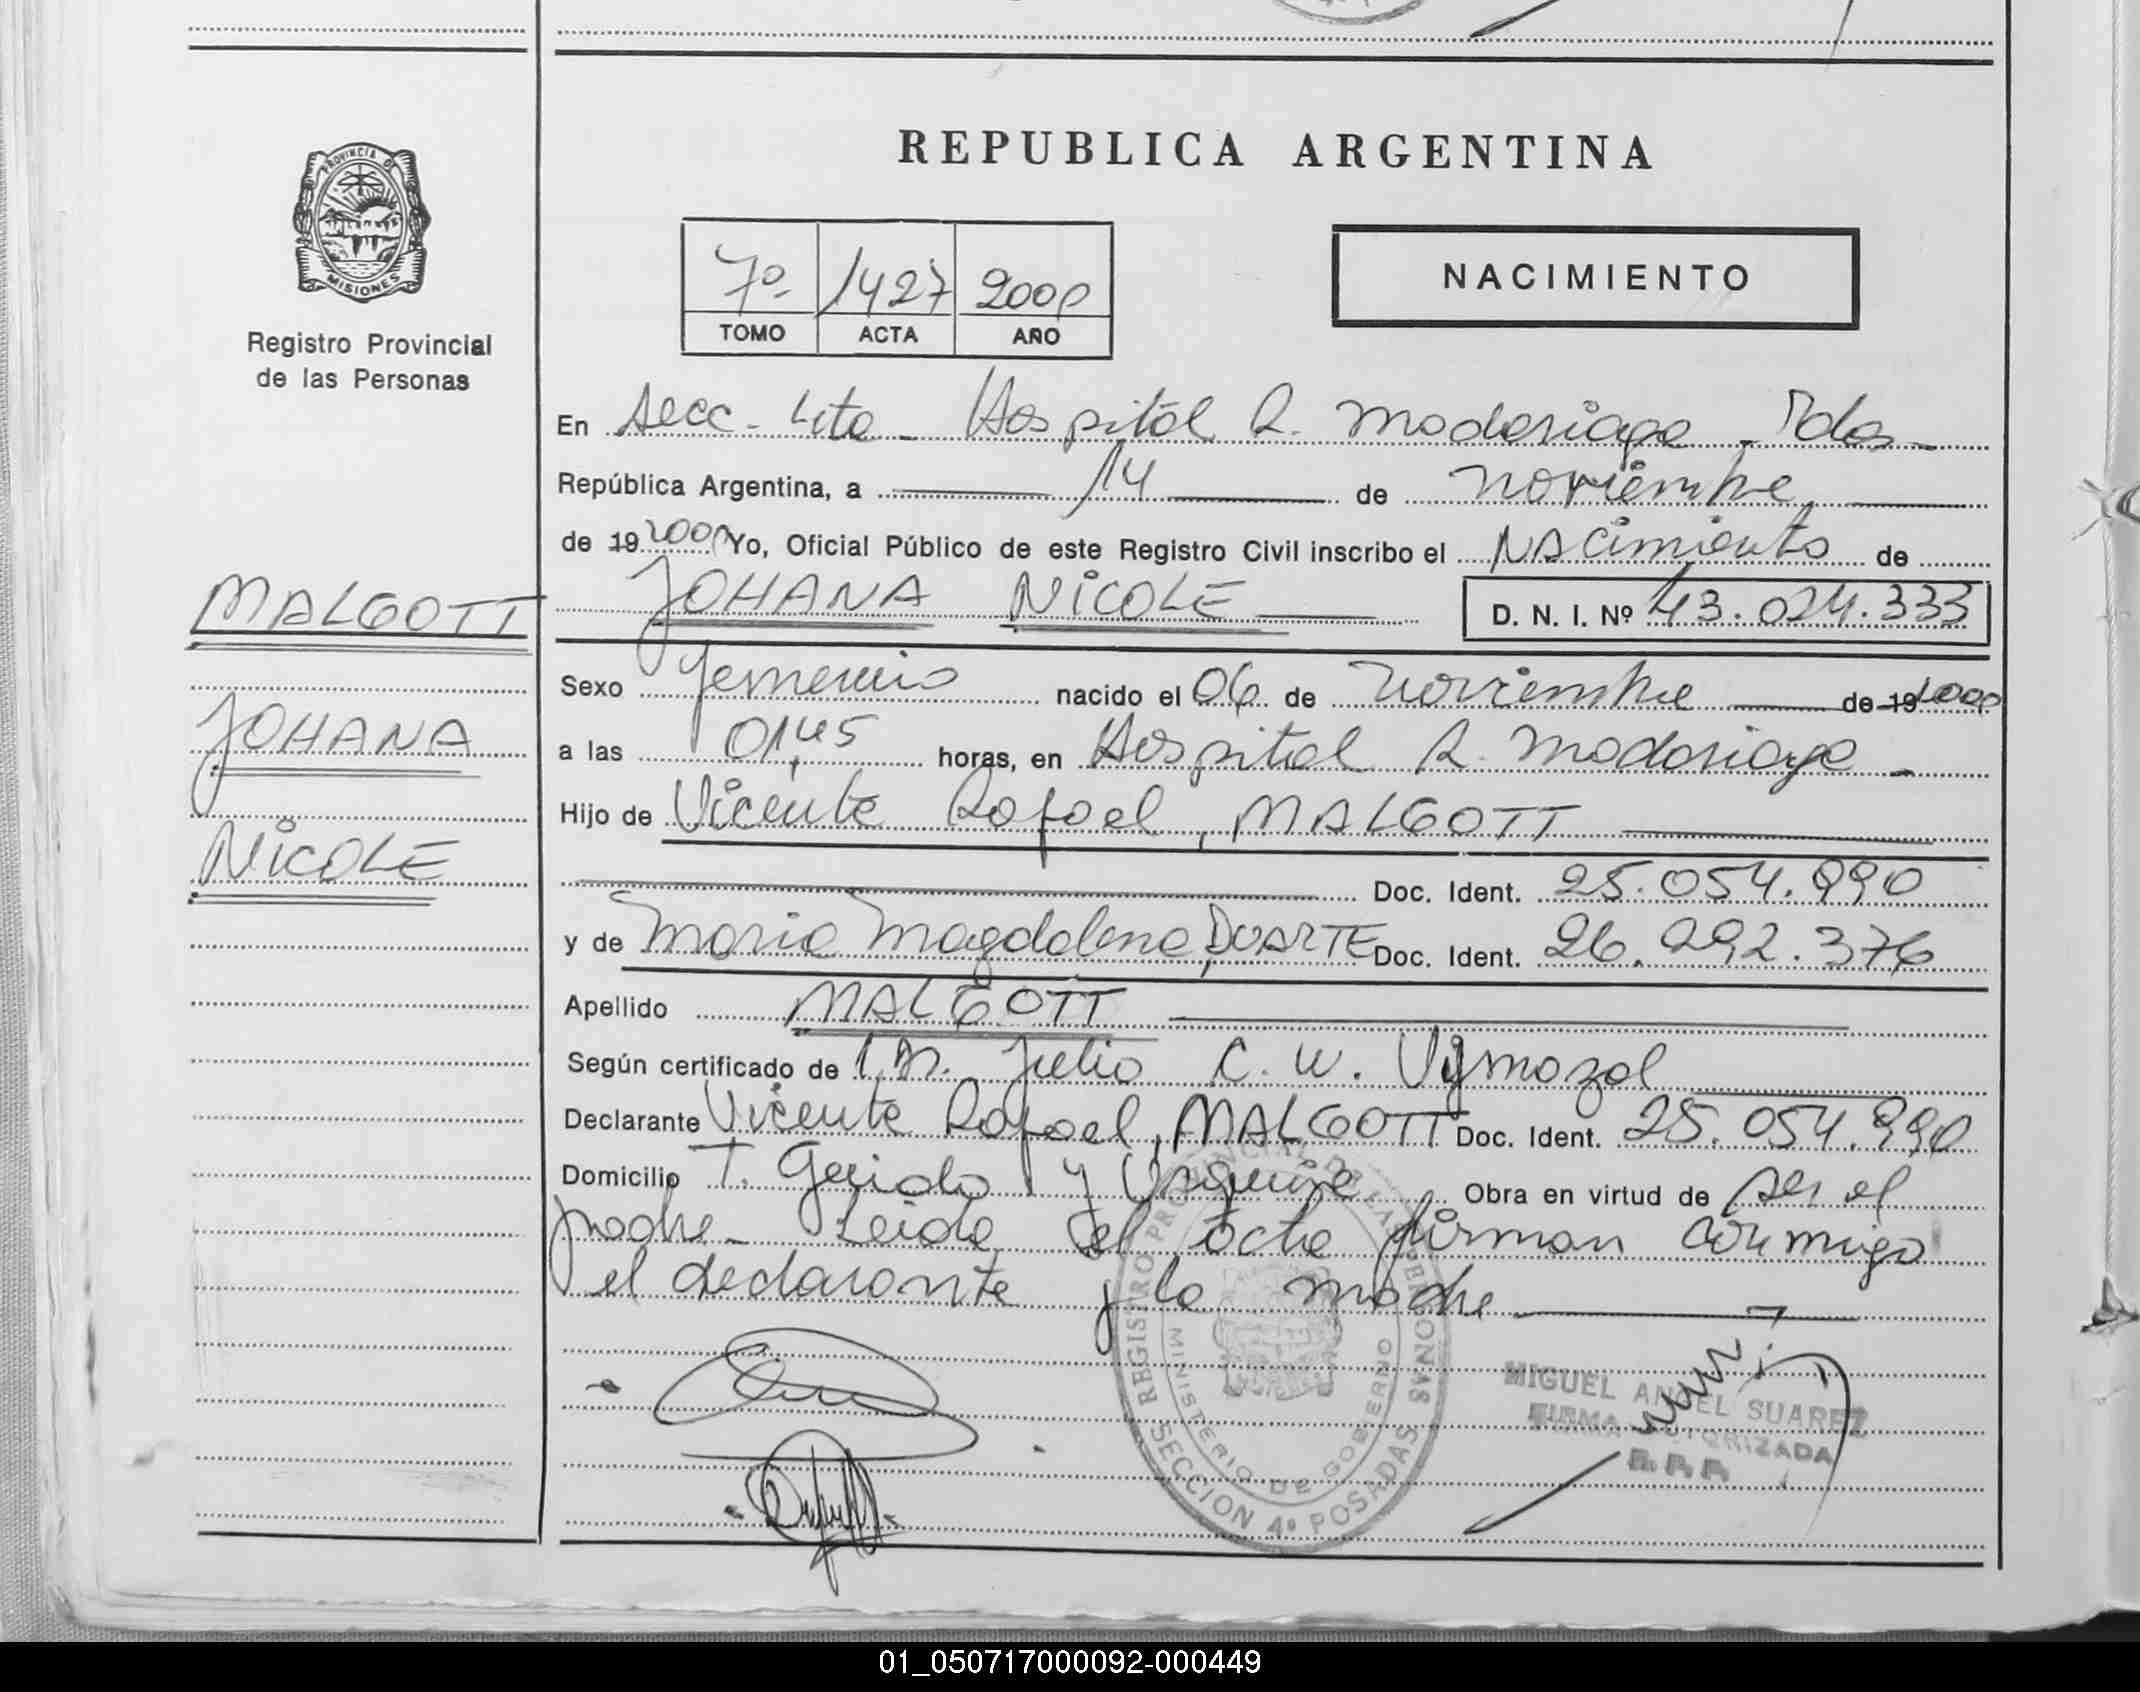 REPUBLICA ARGENTINA
PROVINCIA DE
MISIONES
Registro Provincial
de las Personas
NACIMIENTO
7º 1427 2000
TOMO ACTA AÑO
En Secc. 4ta - Hospital R. Madariaga - Pdas -
República Argentina, a 14 de noviembre
de 19 2000 Yo, Oficial Público de este Registro Civil inscribo el Nacimiento de
JOHANA NICOLE D. N. I. Nº 43.024.333
MALGOTT
JOHANA
NICOLE
Sexo femenino nacido el 06 de noviembre de 19 2000
a las 01,45 horas, en Hospital R. Madariaga -
Hijo de Vicente Rafael, MALGOTT
Doc. Ident. 25.054.990
y de Maria Magdalena, DUARTE Doc. Ident. 26.292.376
Apellido MALGOTT
Según certificado de Julio C. W. Vymazal
Declarante Vicente Rafael, MALGOTT Doc. Ident. 25.054.990
Domicilio T. Guido y Urquiza Obra en virtud de ser el
padre - Leida el acta firman conmigo
el declarante y la madre
REGISTRO PROVINCIAL DE LAS PERSONAS
MINISTERIO DE GOBIERNO
SECCION 4ª POSADAS
MIGUEL ANGEL SUAREZ
FIRMA AUTORIZADA
R. P. P.
01_050717000092-000449